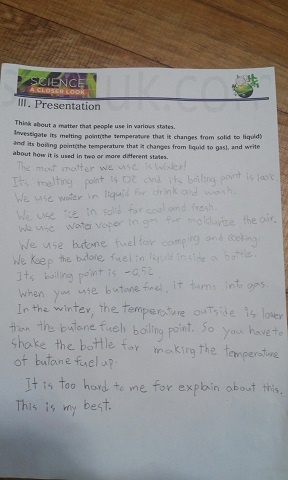 SCIENCE
A CLOSER LOOK
III. Presentation
Think about a matter that people use in various states.
Investigate its melting point(the temperature that it changes from solid to liquid)
and its boiling point(the temperature that it changes from liquid to gas), and write
about how it is used in two or more different states.
The most matter we use is water!
Its melting point is 0℃ and its boiling point is 100℃.
We use water in liquid for drink and wash.
We use ice in solid for cool and fresh.
We use water vaper in gas for moisturize the air.
We use butane fuel for camping and cooking.
We keep the butane fuel in liquid inside a bottle.
Its boiling point is -0.5℃.
When you use butane fuel, it turns into gas.
In the winter, the temperature outside is lower
than the butane fuel's boiling point. So you have to
shake the bottle for making the temperature
of butane fuel up.
It is too hard to me for explain about this.
This is my best.